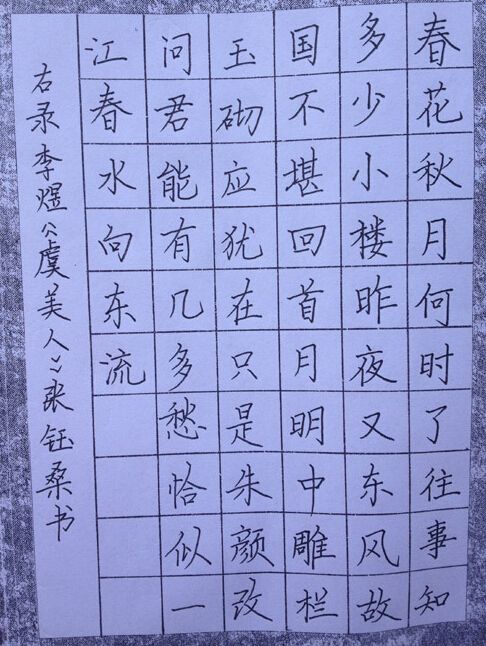 春花秋月何时了往事知
多少小楼昨夜又东风故
国不堪回首月明中雕栏
玉砌应犹在只是朱颜改
问君能有几多愁恰似一
江春水向东流
右录李煜《虞美人》张钰桑书